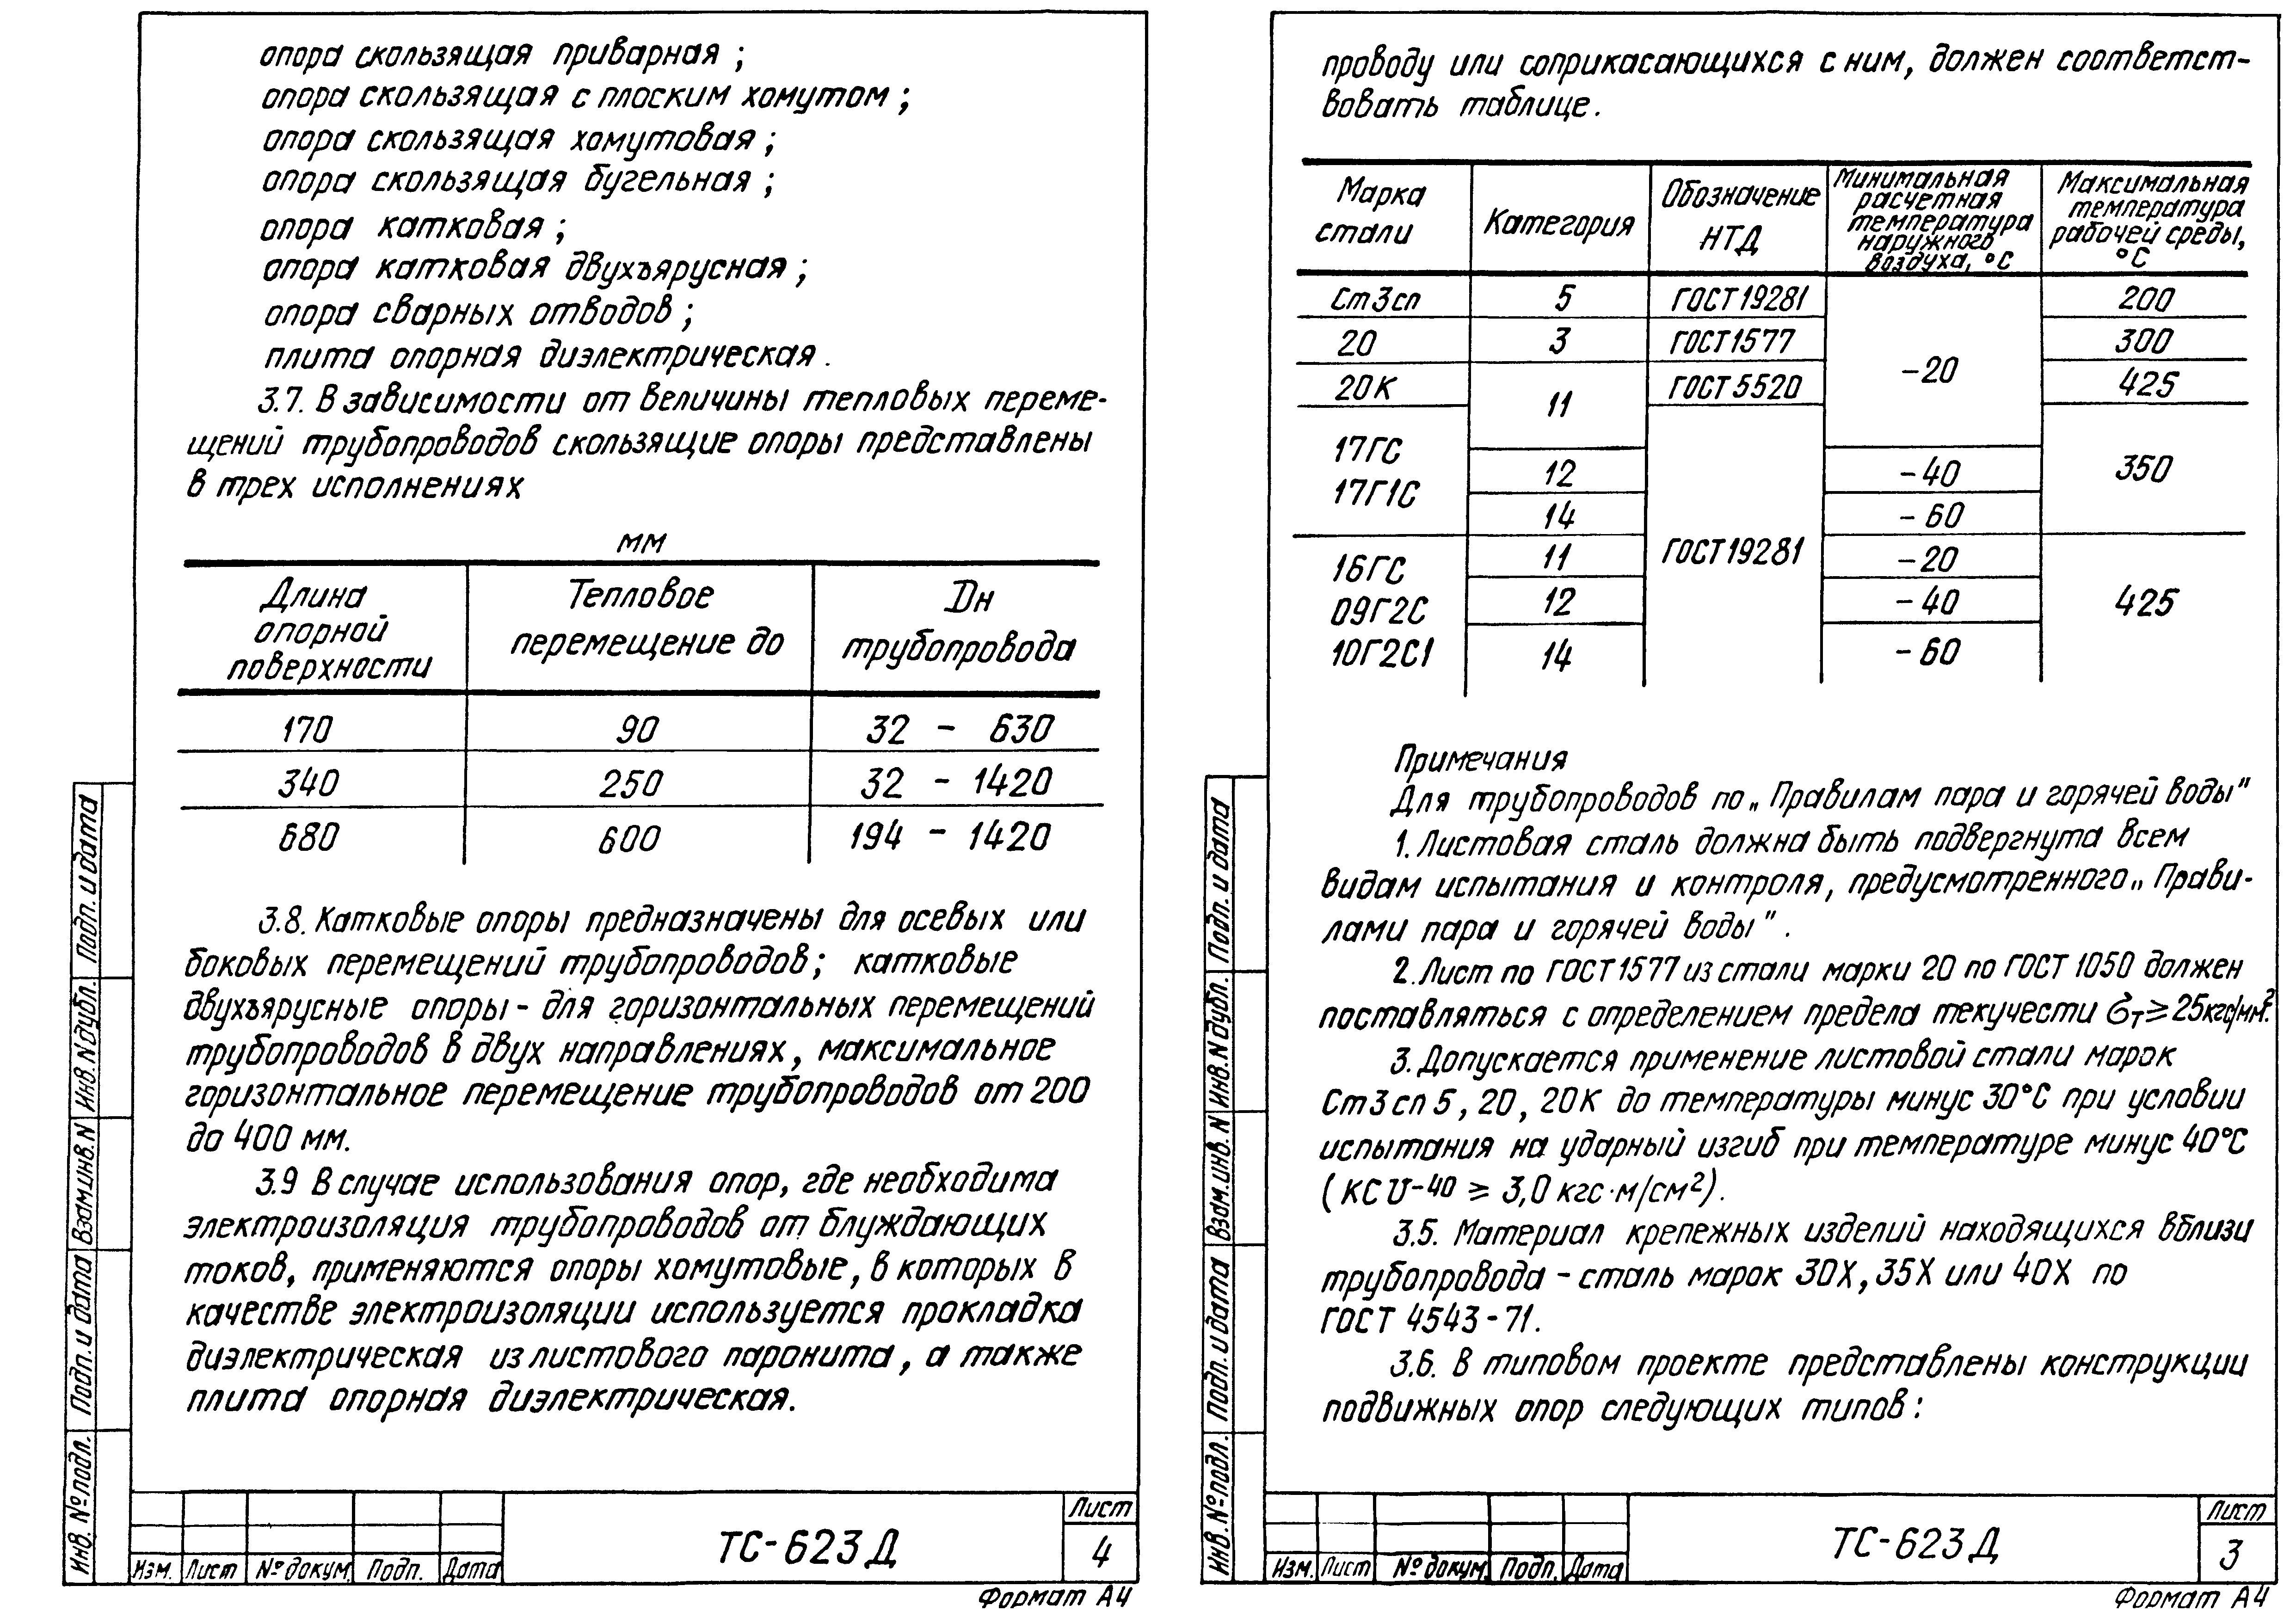 опора скользящая приварная;
опора скользящая с плоским хомутом;
опора скользящая хомутовая;
опора скользящая бугельная;
опора катковая;
опора катковая двухъярусная;
опора сварных отводов;
плита опорная диэлектрическая.
3.7. В зависимости от величины тепловых переме-
щений трубопроводов скользящие опоры представлены
в трех исполнениях
мм
Длина опорной поверхности | Тепловое перемещение до | Dн трубопровода
170 | 90 | 32 - 630
340 | 250 | 32 - 1420
680 | 600 | 194 - 1420
3.8. Катковые опоры предназначены для осевых или
боковых перемещений трубопроводов; катковые
двухъярусные опоры - для горизонтальных перемещений
трубопроводов в двух направлениях, максимальное
горизонтальное перемещение трубопроводов от 200
до 400 мм.
3.9 В случае использования опор, где необходима
электроизоляция трубопроводов от блуждающих
токов, применяются опоры хомутовые, в которых в
качестве электроизоляции используется прокладка
диэлектрическая из листового паронита, а также
плита опорная диэлектрическая.
Инв. № подл. | Подп. и дата | Взам.инв. N | Инв. N дубл. | Подп. и дата
Изм. | Лист | № докум. | Подп. | Дата
ТС-623Д
Лист
4
Формат А4
проводу или соприкасающихся с ним, должен соответст-
вовать таблице.
Марка стали | Категория | Обозначение НТД | Минимальная расчетная температура наружного воздуха, °С | Максимальная температура рабочей среды, °С
Ст3сп | 5 | ГОСТ 19281 | -20 | 200
20 | 3 | ГОСТ 1577 | 300
20К | 11 | ГОСТ 5520 | 425
17ГС
17Г1С | 12 | ГОСТ 19281 | -40 | 350
14 | -60
16ГС | 11 | -20
09Г2С | 12 | -40 | 425
10Г2С1 | 14 | -60
Примечания
Для трубопроводов по „Правилам пара и горячей воды"
1. Листовая сталь должна быть подвергнута всем
видам испытания и контроля, предусмотренного „Прави-
лами пара и горячей воды".
2. Лист по ГОСТ 1577 из стали марки 20 по ГОСТ 1050 должен
поставляться с определением предела текучести σт ≥ 25 кгс/мм².
3. Допускается применение листовой стали марок
Ст3сп5, 20, 20К до температуры минус 30°С при условии
испытания на ударный изгиб при температуре минус 40°С
(KCU-40 ≥ 3,0 кгс·м/см²).
3.5. Материал крепежных изделий находящихся вблизи
трубопровода - сталь марок 30Х, 35Х или 40Х по
ГОСТ 4543-71.
3.6. В типовом проекте представлены конструкции
подвижных опор следующих типов:
Инв. № подл. | Подп. и дата | Взам.инв. N | Инв. N дубл. | Подп. и дата
Изм. | Лист | № докум. | Подп. | Дата
ТС-623Д
Лист
3
Формат А4